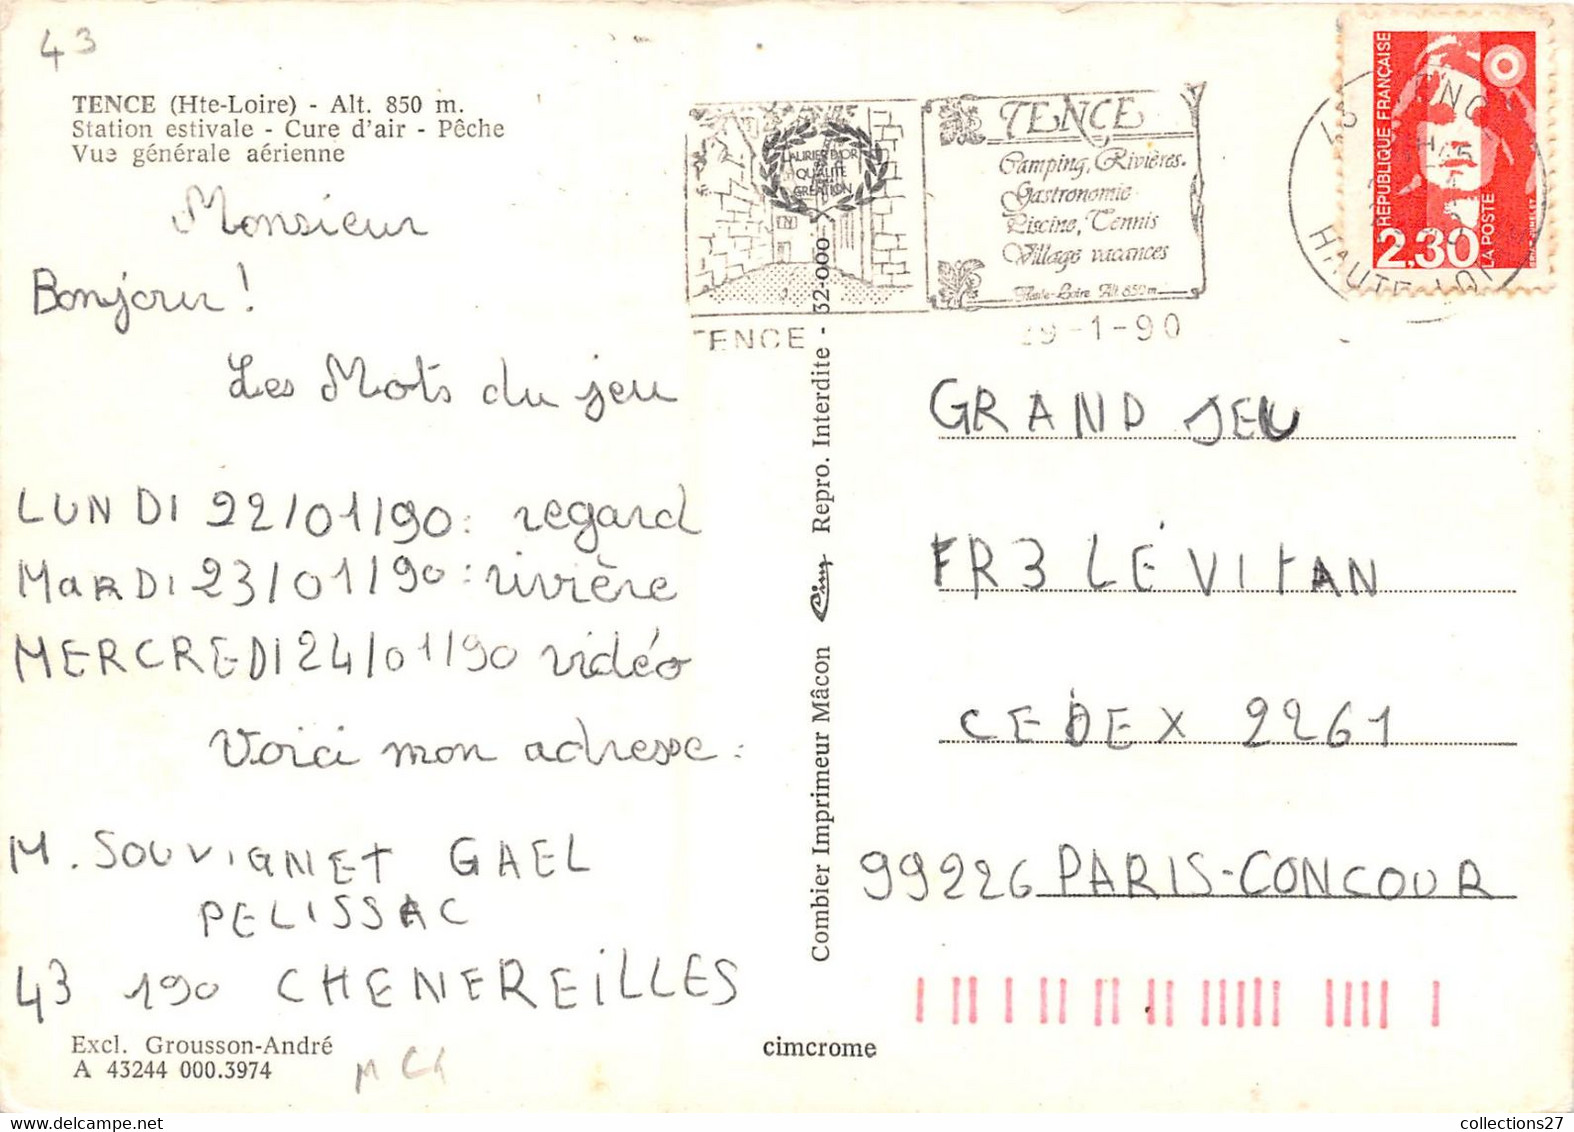 43
TENCE (Hte-Loire) - Alt. 850 m.
Station estivale - Cure d'air - Pêche
Vue générale aérienne
Monsieur
Bonjour !
Les Mots du jeu
LUNDI 22/01/90 : regard
MARDI 23/01/90 : rivière
MERCREDI 24/01/90 vidéo
Voici mon adresse :
M. SOUVIGNET GAEL
PELISSAC
43 190 CHENEREILLES
Excl. Grousson-André
A 43244 000.3974
Combier Imprimeur Mâcon Cim Repro. Interdite - 32-000
cimcrome
LAURIER D'OR
QUALITÉ
CRÉATION
TENCE
Camping, Rivières.
Gastronomie
Piscine, Tennis
Village vacances
Haute-Loire Alt. 850m
TENCE
29-1-90
HAUTE LOIRE
RÉPUBLIQUE FRANÇAISE
2,30
LA POSTE
GRAND JEU
FR3 LÉVITAN
CEDEX 2261
99226 PARIS-CONCOUR
collections27